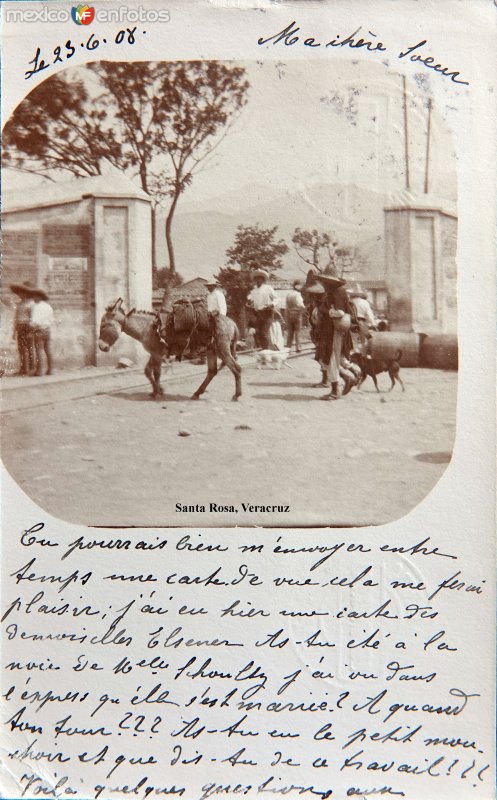 mexico enfotos
Le 23.6.08.
Ma chère Soeur
Santa Rosa, Veracruz
Tu pourrais bien m'envoyer entre
temps une carte de vue, cela me ferai
plaisir; j'ai eu hier une carte des
demoiselles Elsener As-tu été à la
noce de Melle j'ai vu dans
l'éxpress qu'élle s'est mariée? A quand
ton tour??? As-tu eu le petit mou-
choir et que dis-tu de ce travail???
Voilà quelques questions, aux